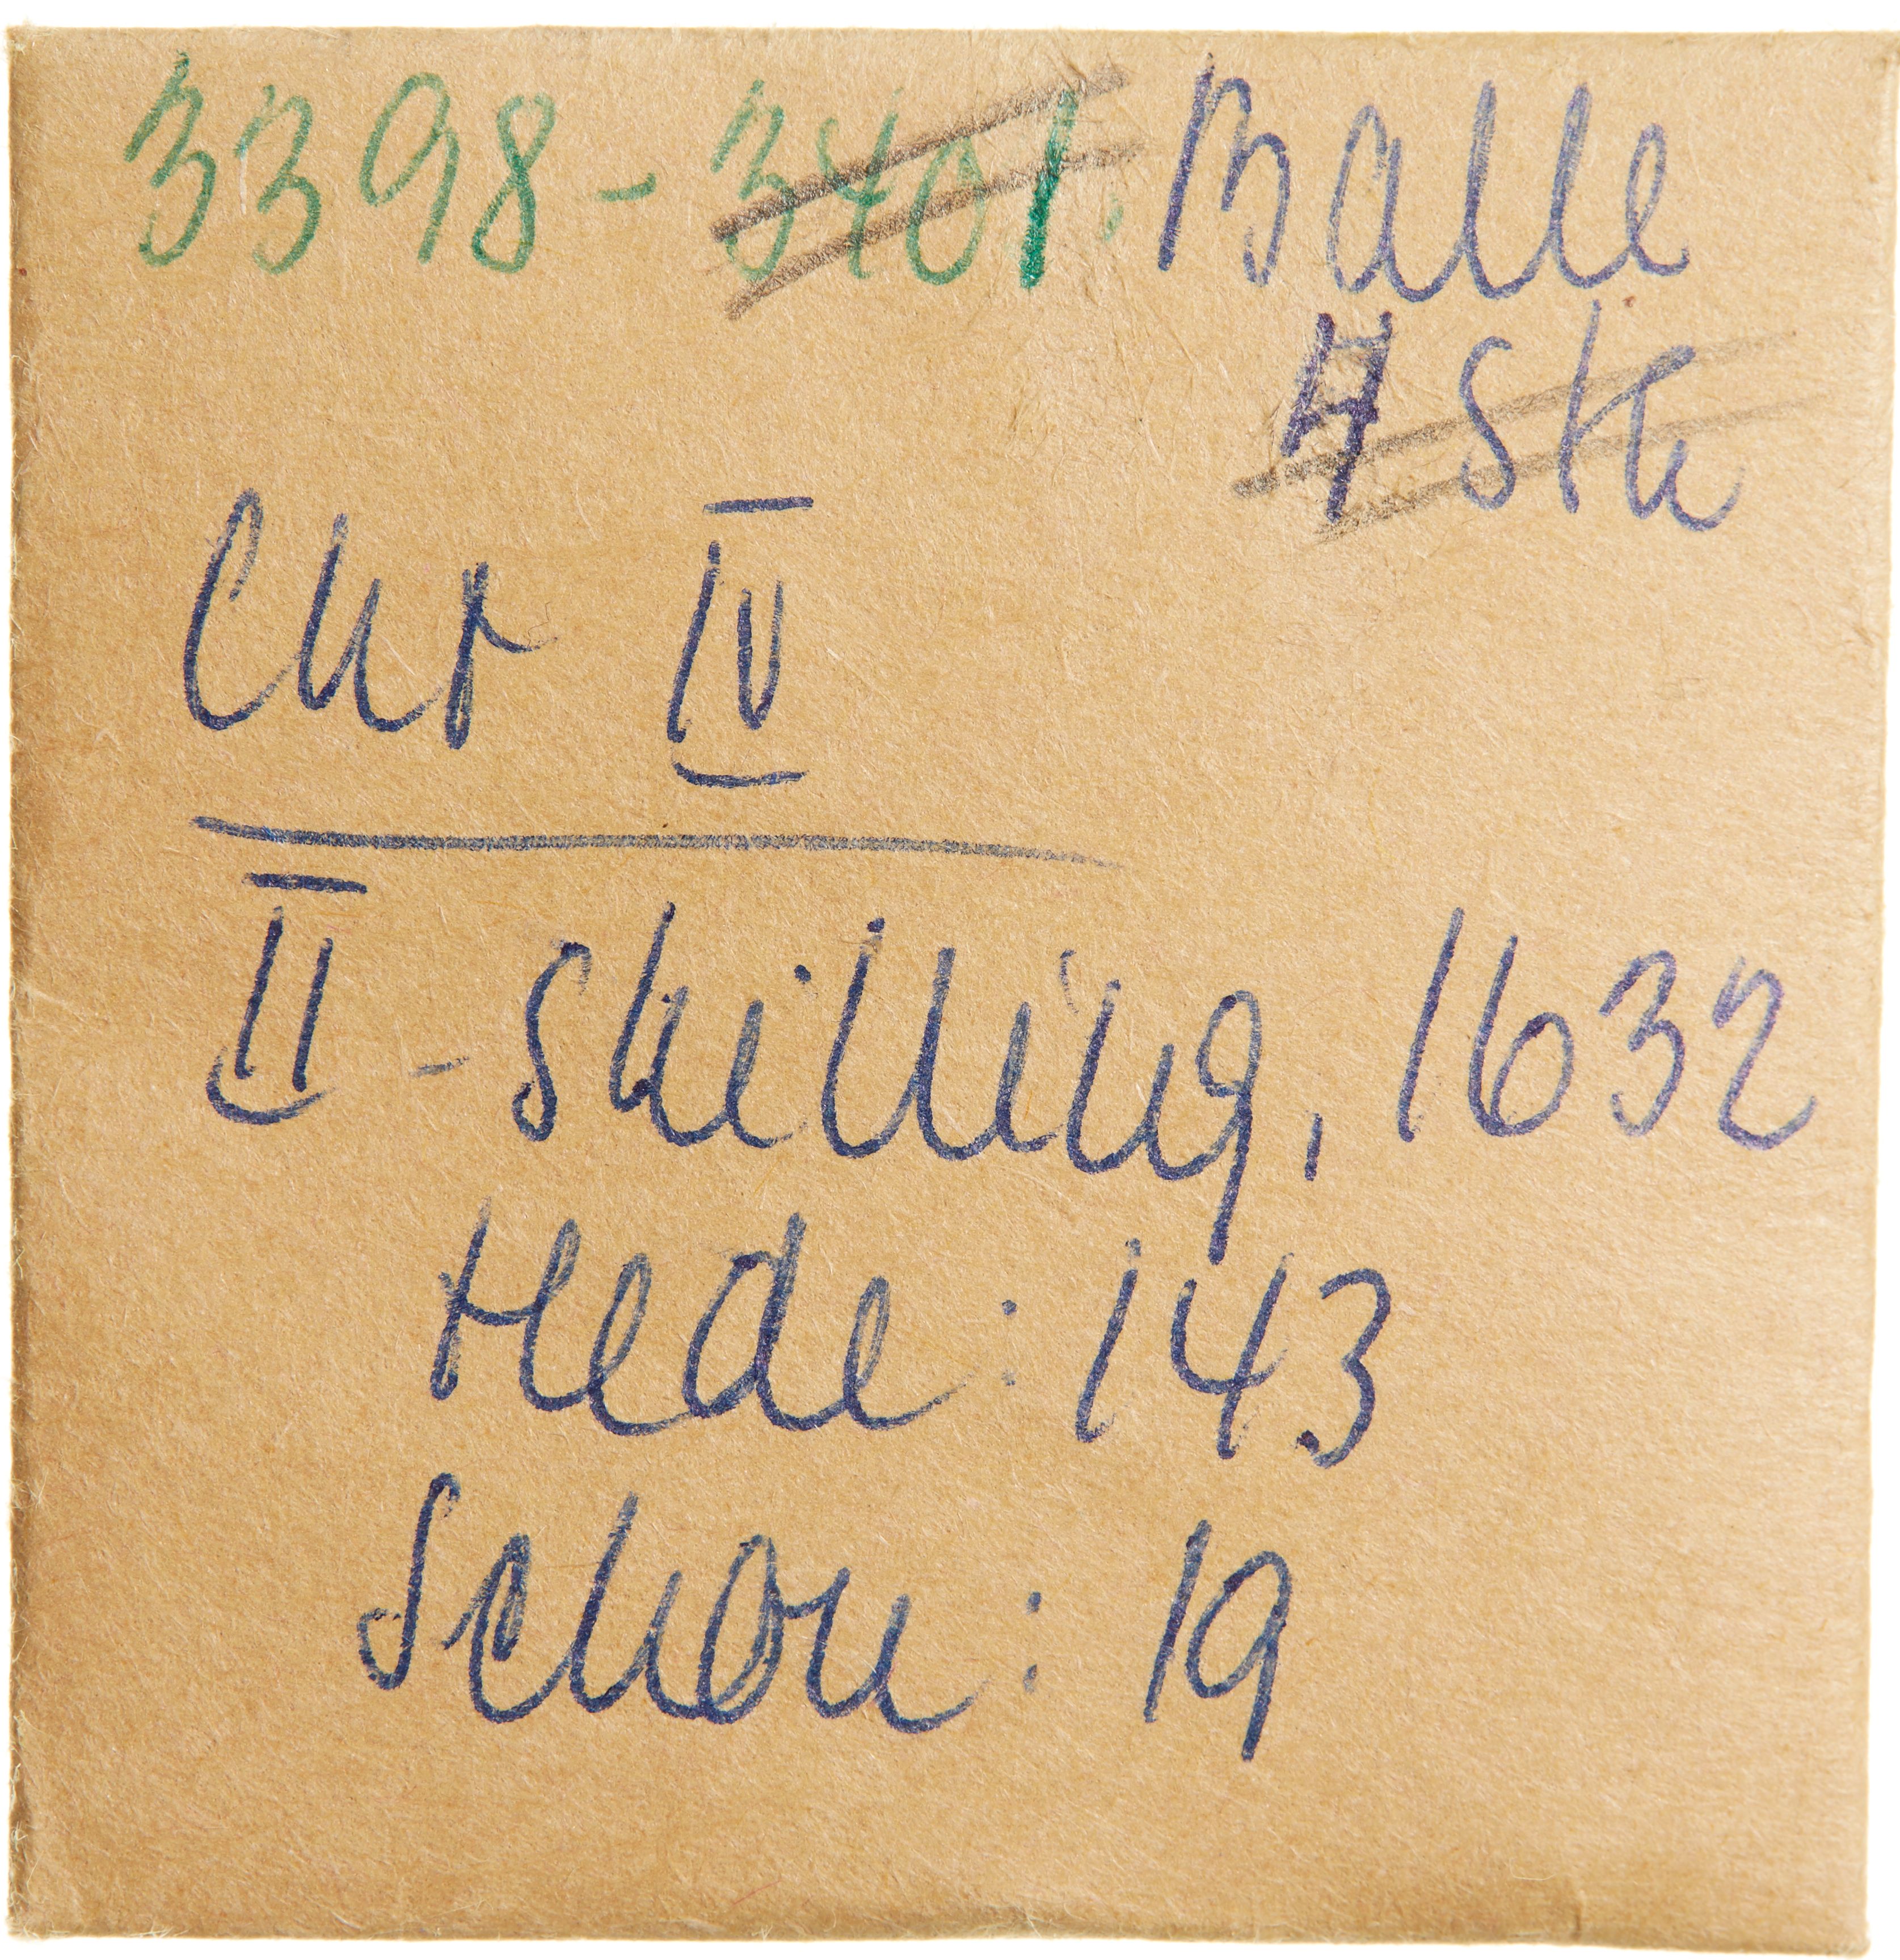 3398 - 3401. Balle
4 Stk
Chr IV
II - Skilling, 1632
Hede : 143
Schou : 19